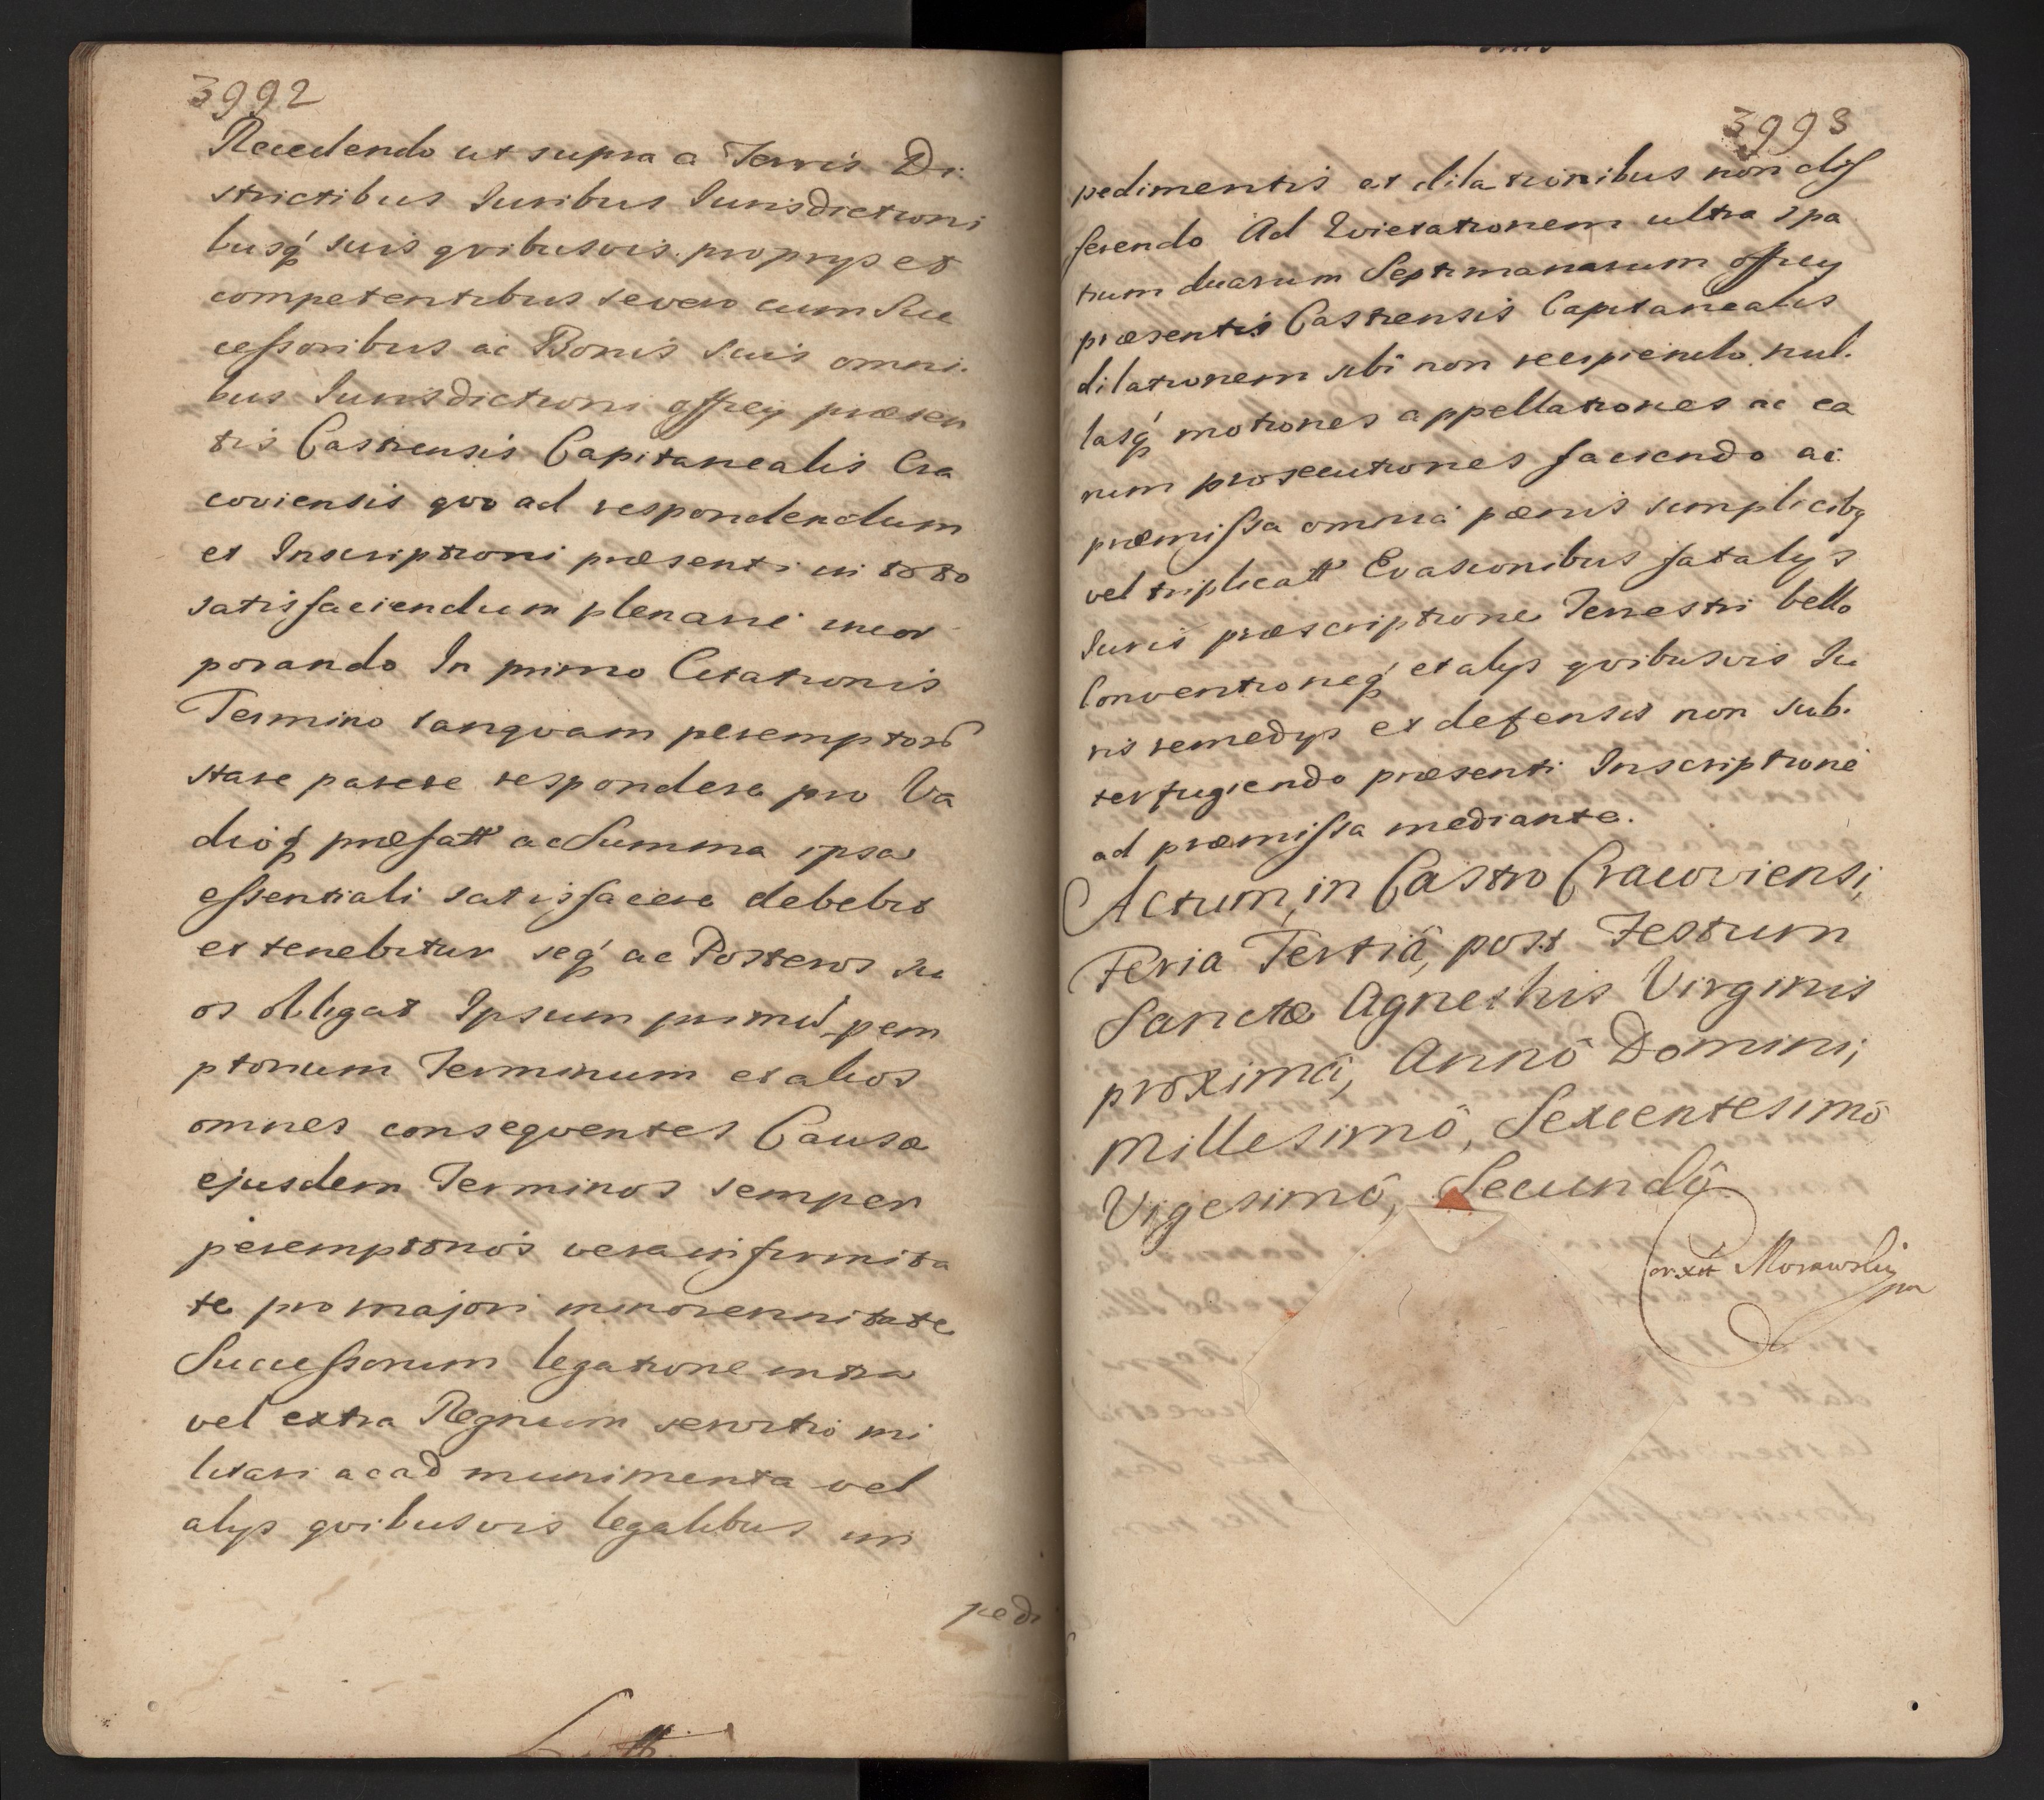 3992
Recedendo ut supra a Terris Di:
strictibus Iuribus Iurisdictioni
busq́ suis qvibusvis proprijs et
competentibus seveso cum Suc
cessoribus ac Bonis suis omni.
bus Iurisdictioni offiey præsen
tis Castrensis Capitanealis Cra
coviensis qvo ad respondendum
et Inscriptioni præsenti in toto
satisfaciendum plenarie incor
porando In primo Citationis
Termino tanqvam peremptorio
stare parere respondere pro Va
dioq́ præfatt ac Summa ipsa
essentiali satisfacere debebit
et tenebitur seq́ ac Posteros su
os obligat Ipsum primũ pem
ptorium Terminum et alios
omnes conseqventes Causæ
ejusdem Terminos semper
peremptorios vera infirmita
te pro majori minorennitate
Successorum legatione intra
vel extra Regnum servitio mi
litari ac ad munimenta vel
alijs qvibusvis legalibus im
pedi
3993
pedimentis et dilationibus non dif
ferendo Ad Evictationem ultra spa
tium duarum Septimanarum offiey
præsentis Castrensis Capitanealis
dilationem sibi non recipiendo nul.
lasq́ motiones appellationes ac ea
rum prosecutiones faciendo ac
præmissa omnia pœnis simplicibq
vel triplicatt Evasionibus fatalys
Iuris præscriptione Terrestri bello
Conventioneq́ et alijs qvibusvis Iu
ris remedijs et defensis non sub.
terfugiendo præsenti Inscriptione
ad præmissa mediante.
Actum, in Castro Cracoviensi,
Feria Tertiâ, post Festum
Sanctæ Agnethis Virginis
proximâ, Annô Domini;
Millesimô, Sexcentesimô
Vigesimô, Secundô
Corxit Morawsky
mp